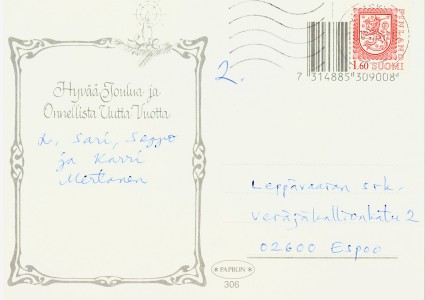 2.
FINLAND
1.60 SUOMI
7 314885 309008
Hyvää Joulua ja
Onnellista Uutta Vuotta
L. Sari, Seppo
ja Karri
Mertanen
Leppävaaran srk.
Veräjäkallionkatu 2
02600 Espoo
PAPRON
306